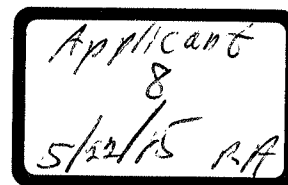 Applicant
8
5/22/15